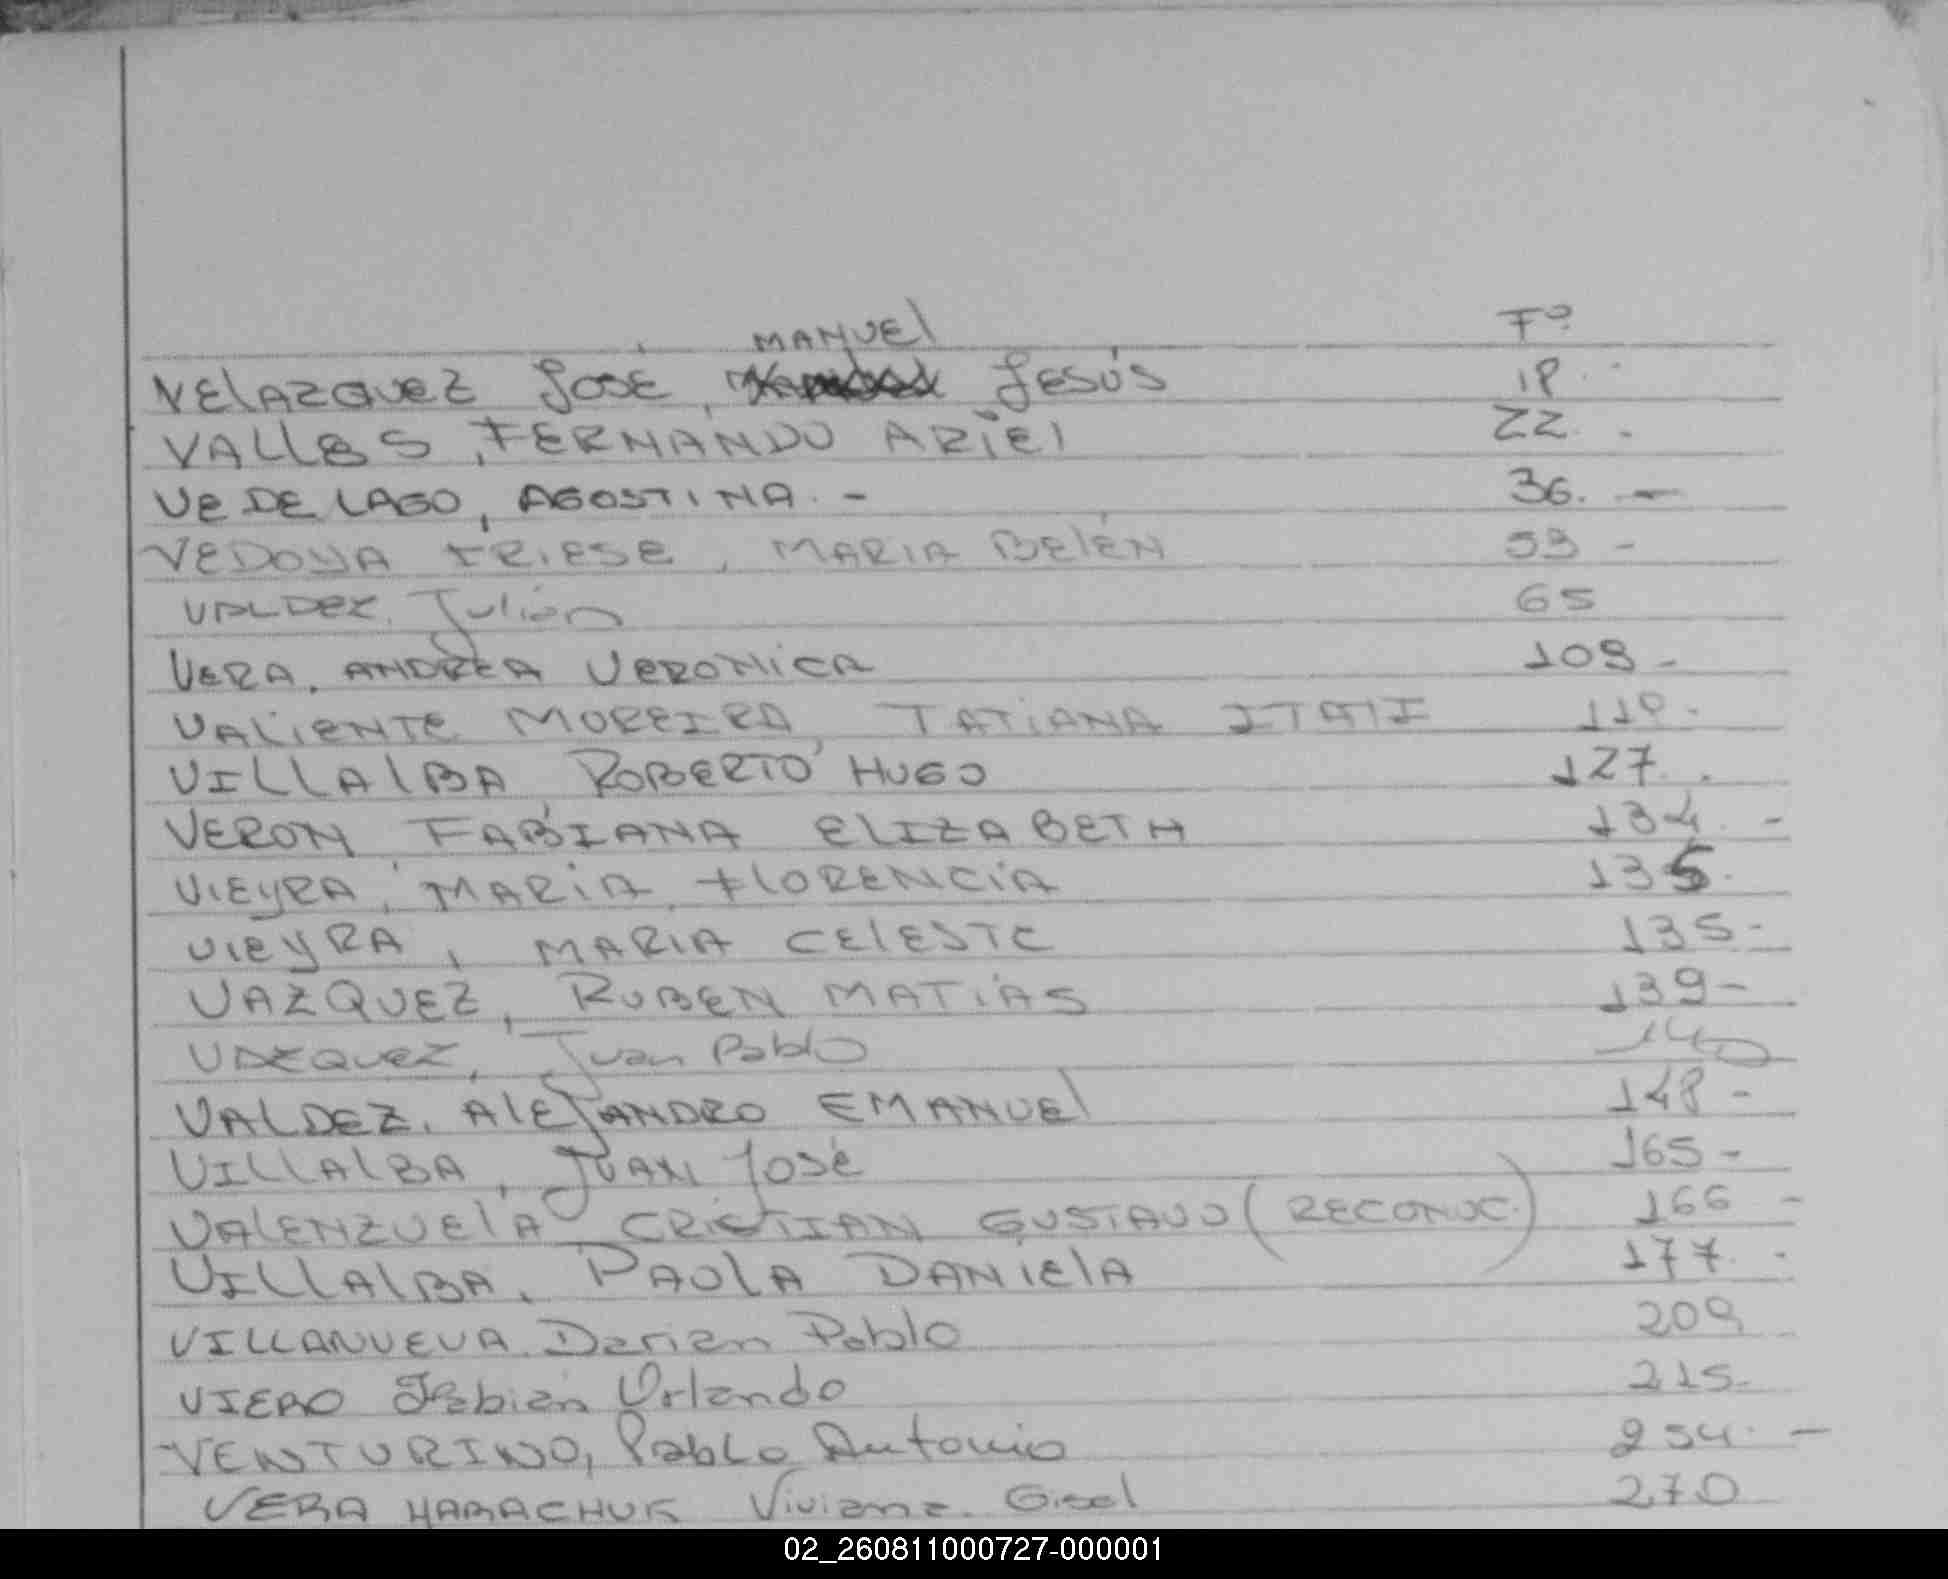 MANUEL Fº
VELAZQUEZ José, Jesús 18.
VALLES, FERNANDO ARIEL 22.
VEDELAGO, AGOSTINA.- 36.-
VEDOYA FRIESE, MARIA BELÉN 53-
VALDEZ, Julián 65
VERA, ANDREA VERONICA 109-
VALIENTE MOREIRA, TATIANA ITATI 118.
VILLALBA, ROBERTO HUGO 127.
VERON, FABIANA ELIZABETH 134.-
VIEYRA, MARIA FLORENCIA 135.
VIEYRA, MARIA CELESTE 135-
VAZQUEZ, RUBEN MATIAS 139-
VAZQUEZ, Juan Pablo 140
VALDEZ, ALEJANDRO EMANUEL 148-
VILLALBA, JUAN José 165-
VALENZUELA CRISTIAN GUSTAVO (RECONOC.) 166-
VILLALBA, PAOLA DANIELA 177.-
VILLANUEVA Darian Pablo 209
VIERO Fabián Orlando 215-
VENTURINO, Pablo Antonio 254.-
VERA HARACHUK Viviana Gisel 270
02_260811000727-000001